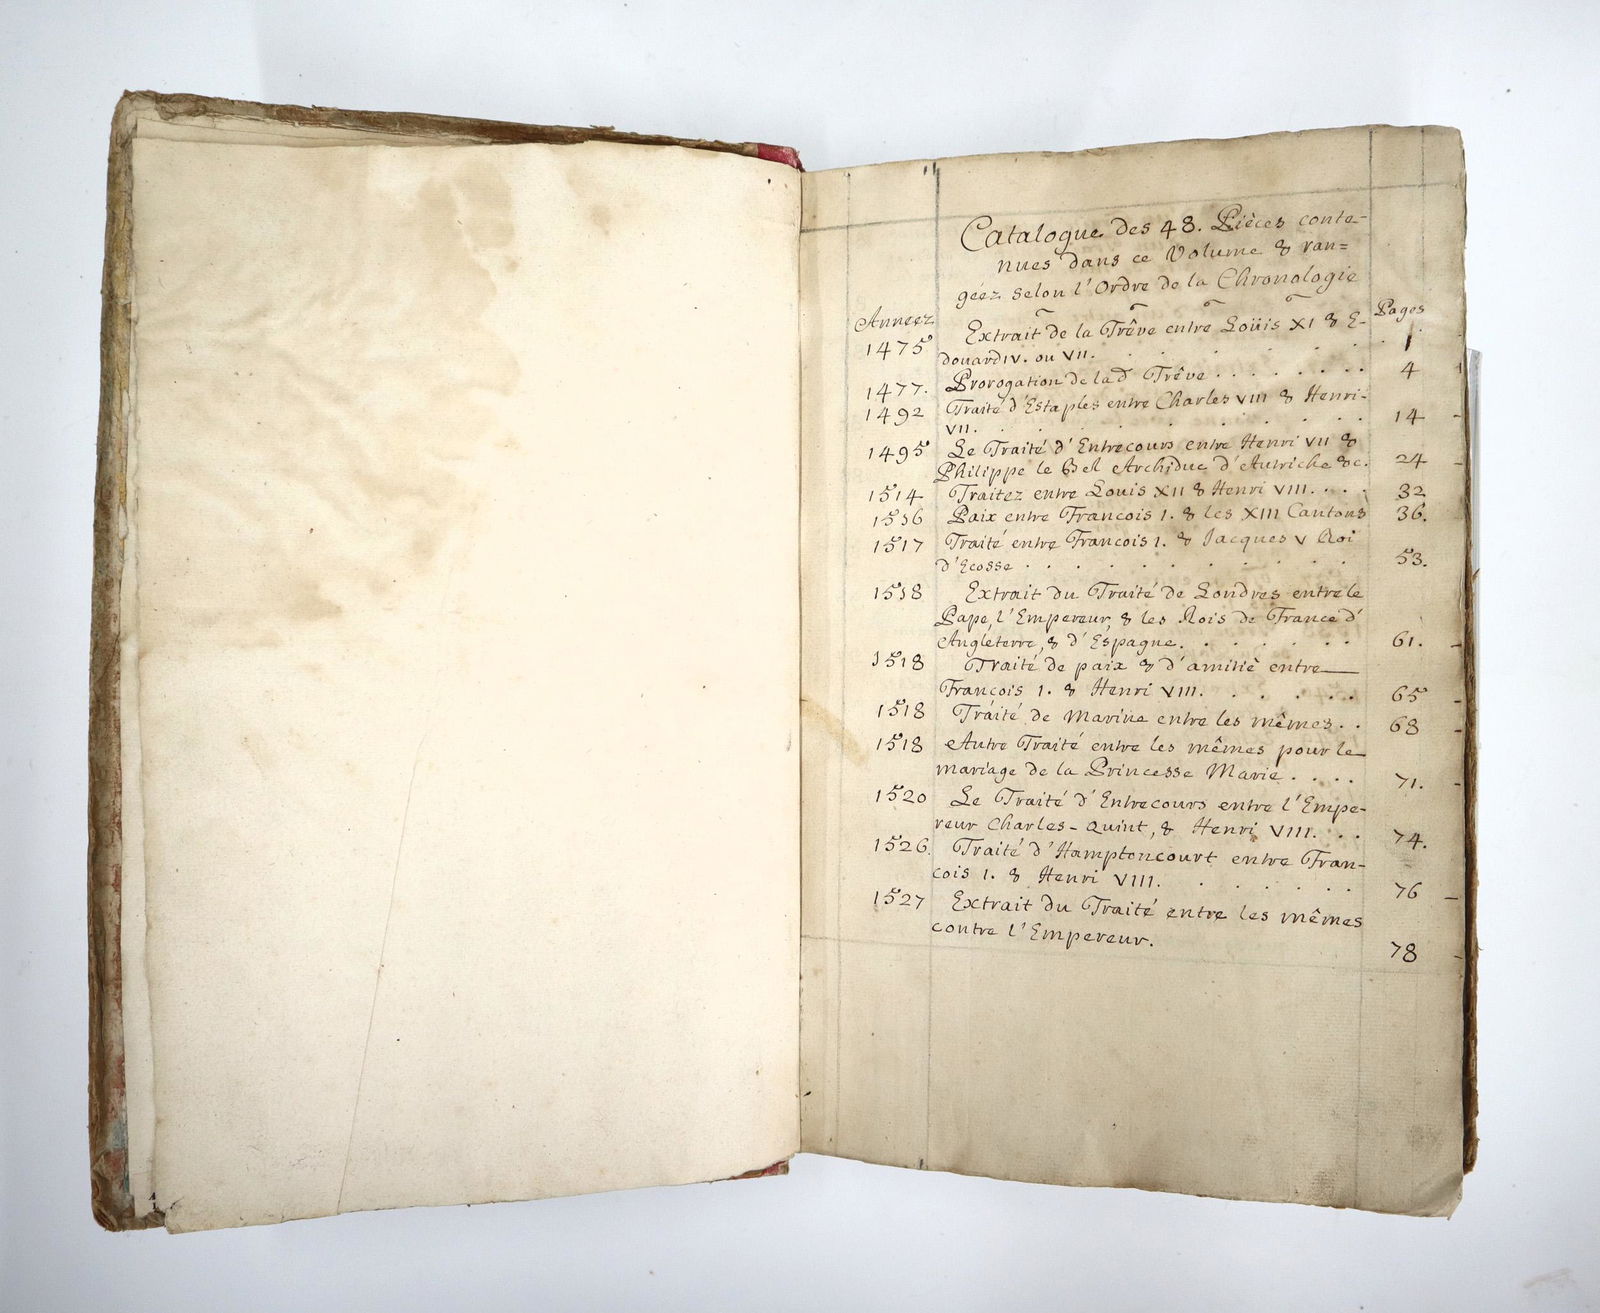 Catalogue des 48. Pièces conte-
nues dans ce Volume & ran=
géez selon l'Ordre de la Chronologie
Anneez Pages
1475 Extrait de la Trêve entre Loüis XI & E-
douard IV. ou VII. . . . . . . 1
1477. Prorogation de lad Trêve . . . . . . . 4
1492 Traité d'Estaples entre Charles VIII & Henri-
VII. . . . . . . . . 14
1495 Le Traité d'Entrecours entre Henri VII &
Philippe le Bel Archiduc d'Autriche &c. 24
1514 Traitez entre Louis XII & Henri VIII. . . . 32
1516 Paix entre Francois 1. & les XIII Cantons 36.
1517 Traité entre Francois 1. & Jacques V Roi
d'Ecosse . . . . . . . . 53.
1518 Extrait du Traité de Londres entre le
Pape, l'Empereur, & les Rois de France d'
Angleterre, & d'Espagne. . . . . . . 61.
1518 Traité de paix & d'amitiè entre
Francois 1. & Henri VIII. . . . . . . 65
1518 Traité de Marine entre les mêmes. . 68
1518 Autre Traité entre les mêmes pour le
mariage de la Princesse Marie . . . . 71.
1520 Le Traité d'Entrecours entre l'Empe-
reur Charles-Quint, & Henri VIII. . . 74.
1526. Traité d'Hamptoncourt entre Fran-
cois 1. & Henri VIII. . . . . . . 76
1527 Extrait du Traité entre les mêmes
contre l'Empereur. 78